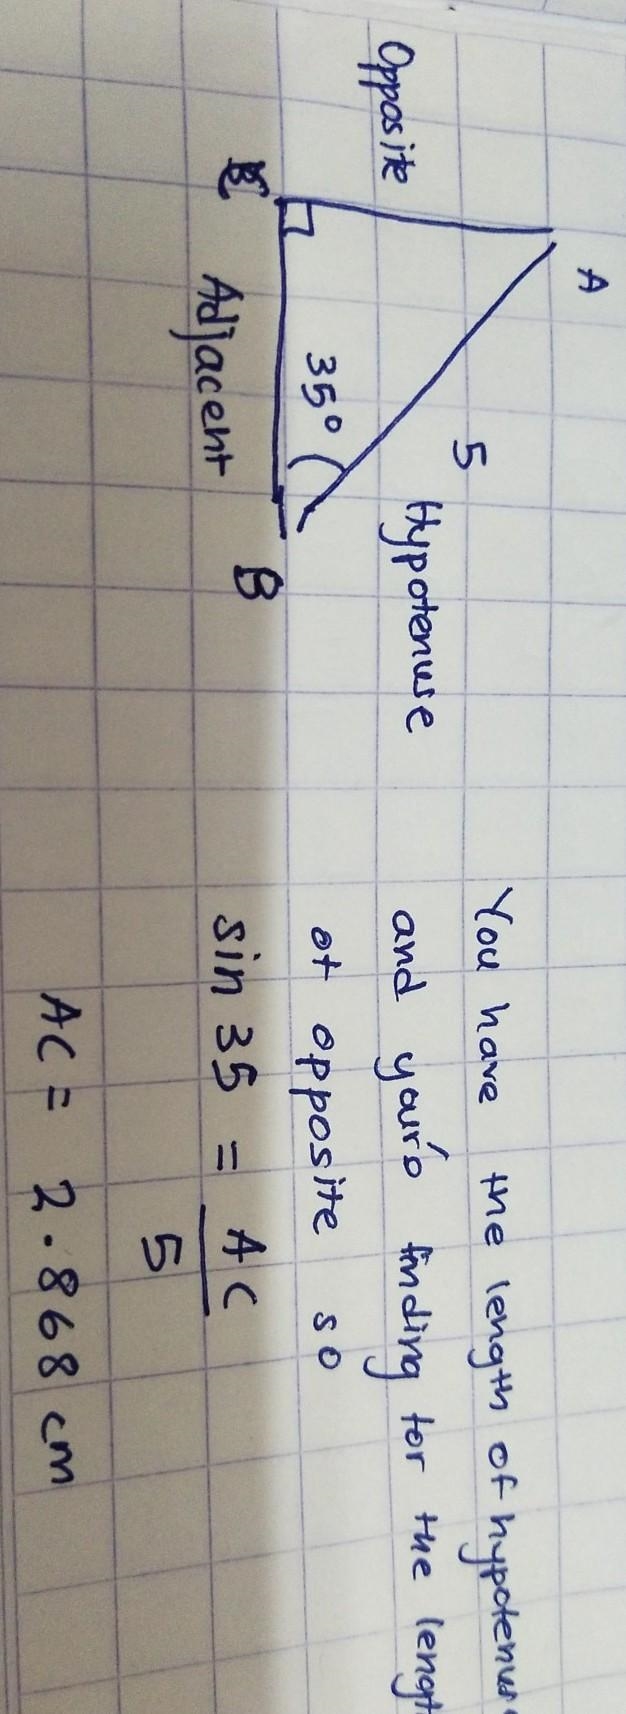 A
Opposite
5
Hypotenuse
35°
C
B
Adjacent
You have the length of hypotenuse
and your'o finding for the length
of opposite so
sin 35 = AC
5
AC = 2.868 cm